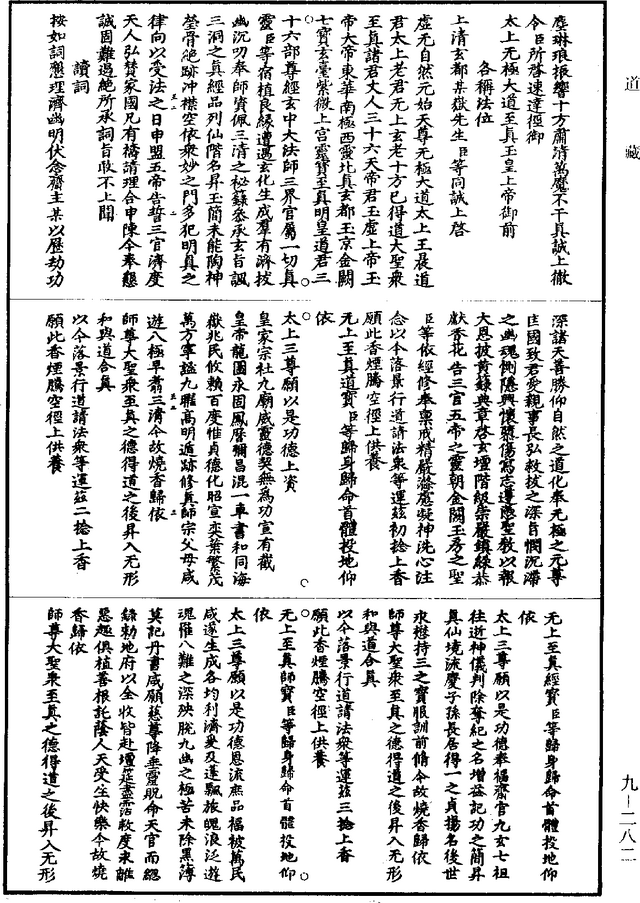 道藏
塵琳琅振響十方肅清萬魔不干真誠上徹
令臣所啓速達徑御
太上无極大道至真玉皇上帝御前
各稱法位
上清玄都某嶽先生臣等同誠上啓
虛无自然元始天尊无極大道太上玉晨道
君太上老君无上玄老十方已得道大聖衆
至真諸君丈人三十六天帝君玉虛上帝玉
帝大帝東華南極西靈北真玄都玉京金闕
七寶玄臺紫微上宮靈寶至真明皇道君三
十六部尊經玄中大法師三界官屬一切真
靈臣等宿植良緣遭遇玄化生成羣有濟拔
幽沉叨奉師資佩三清之祕籙叅承玄旨諷
三洞之真經品列仙階名昇玉簡未能陶神
瑩骨絕跡沖襟空依衆妙之門多犯明真之
律向以受法之日申盟五帝告誓三官濟度
天人弘賛家國凡有禱請理合申陳今奉懇
誠固難遏絕所承詞旨敢不上聞
讀詞
按如詞懇理濟幽明伏念齋主某以歷劫功
深諸天善勝仰自然之道化奉无極之元尊
匡國致君愛親事長弘救拔之深旨憫沉滯
之幽魂惻隱興懷
大恩披黃籙典章啓玄壇階級崇嚴鎮綵恭
獻香花告三官五帝之靈朝金闕玉房之聖
臣等依經修奉稟戒精嚴滌慮凝神洗心注
念以今落景行道請法衆等運茲初捻上香
願此香煙騰空徑上供養
无上至真道寶臣等歸身歸命首體投地仰
依
太上三尊願以是功德上資
皇家宗社九廟威靈德契無為功宣有截
皇帝龍圖永固鳳曆彌昌混一車書和同海
嶽兆民攸賴百度惟貞德化昭宣奕葉繁茂
萬方寧謐九聯高明遁跡修真師宗父母咸
遊八極早翥三清今故燒香歸依
師尊大聖衆至真之德得道之後昇入无形
和與道合真
以今落景行道請法衆等運茲二捻上香
願此香煙騰空徑上供養
无上至真經寶臣等歸身歸命首體投地仰
依
太上三尊願以是功德奉福齋官九玄七祖
往近神儀判除奪紀之名增益記功之簡昇
真仙境流慶子孫長居得一之貞揚名後世
永懋持三之寶服訓前脩今故燒香歸依
師尊大聖衆至真之德得道之後昇入无形
和與道合真
以今落景行道請法衆等運茲三捻上香
願此香煙騰空徑上供養
无上至真師寶臣等歸身歸命首體投地仰
依
太上三尊願以是功德恩流庶品福被萬民
咸遂生成各均利濟爰及蓬飄旅魄浪泛遊
魂罹八難之深殃脫九幽之極苦未除黑簿
莫記丹書咸願慈尊降乗靈貺命天官而總
錄勑地府以全收皆赴壇筵盡霑救度永離
惡趣俱植善根託蔭人天受生快樂今故燒
香歸依
師尊大聖衆至真之德得道之後昇入无形
九-二八二